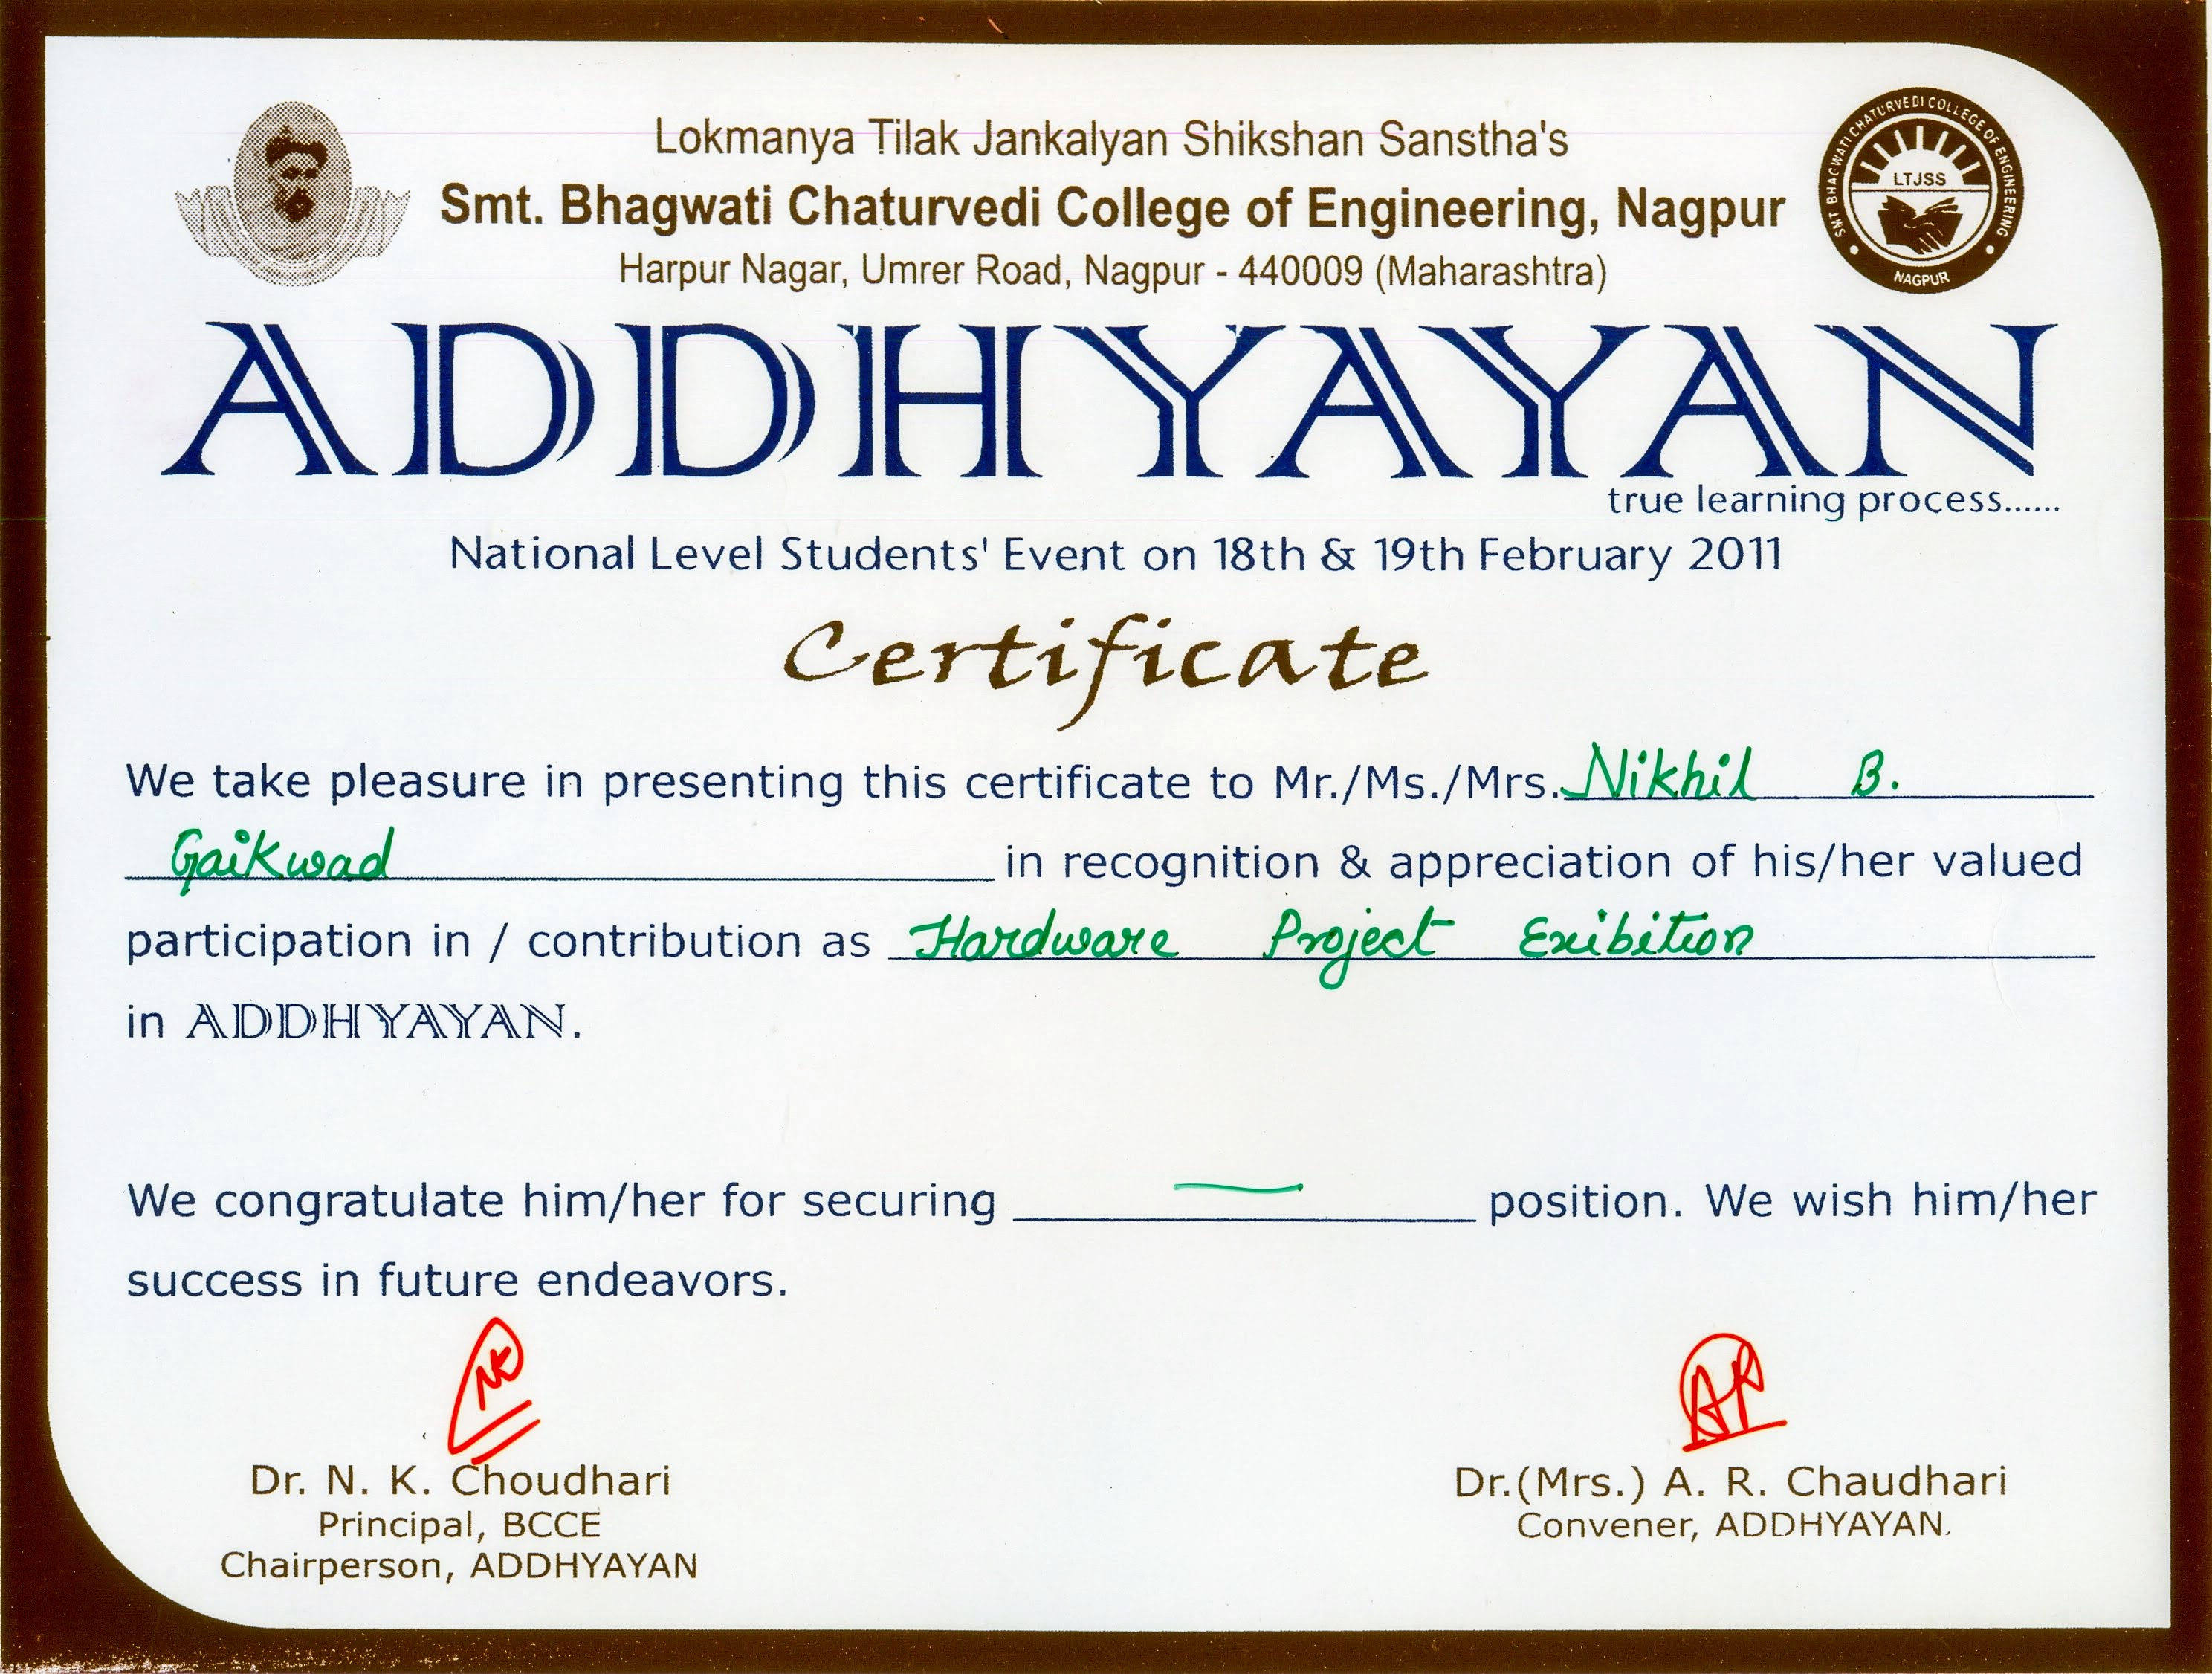 Lokmanya Tilak Jankalyan Shikshan Sanstha's
Smt. Bhagwati Chaturvedi College of Engineering, Nagpur
Harpur Nagar, Umrer Road, Nagpur - 440009 (Maharashtra)
SMT BHAGWATI CHATURVEDI COLLEGE OF ENGINEERING
LTJSS
NAGPUR
ADDHYAYAN
true learning process......
National Level Students' Event on 18th & 19th February 2011
Certificate
We take pleasure in presenting this certificate to Mr./Ms./Mrs. Nikhil B.
Gaikwad in recognition & appreciation of his/her valued
participation in / contribution as Hardware Project Exibition
in ADDHYAYAN.
We congratulate him/her for securing — position. We wish him/her
success in future endeavors.
NK
AR
Dr. N. K. Choudhari
Principal, BCCE
Chairperson, ADDHYAYAN
Dr.(Mrs.) A. R. Chaudhari
Convener, ADDHYAYAN.